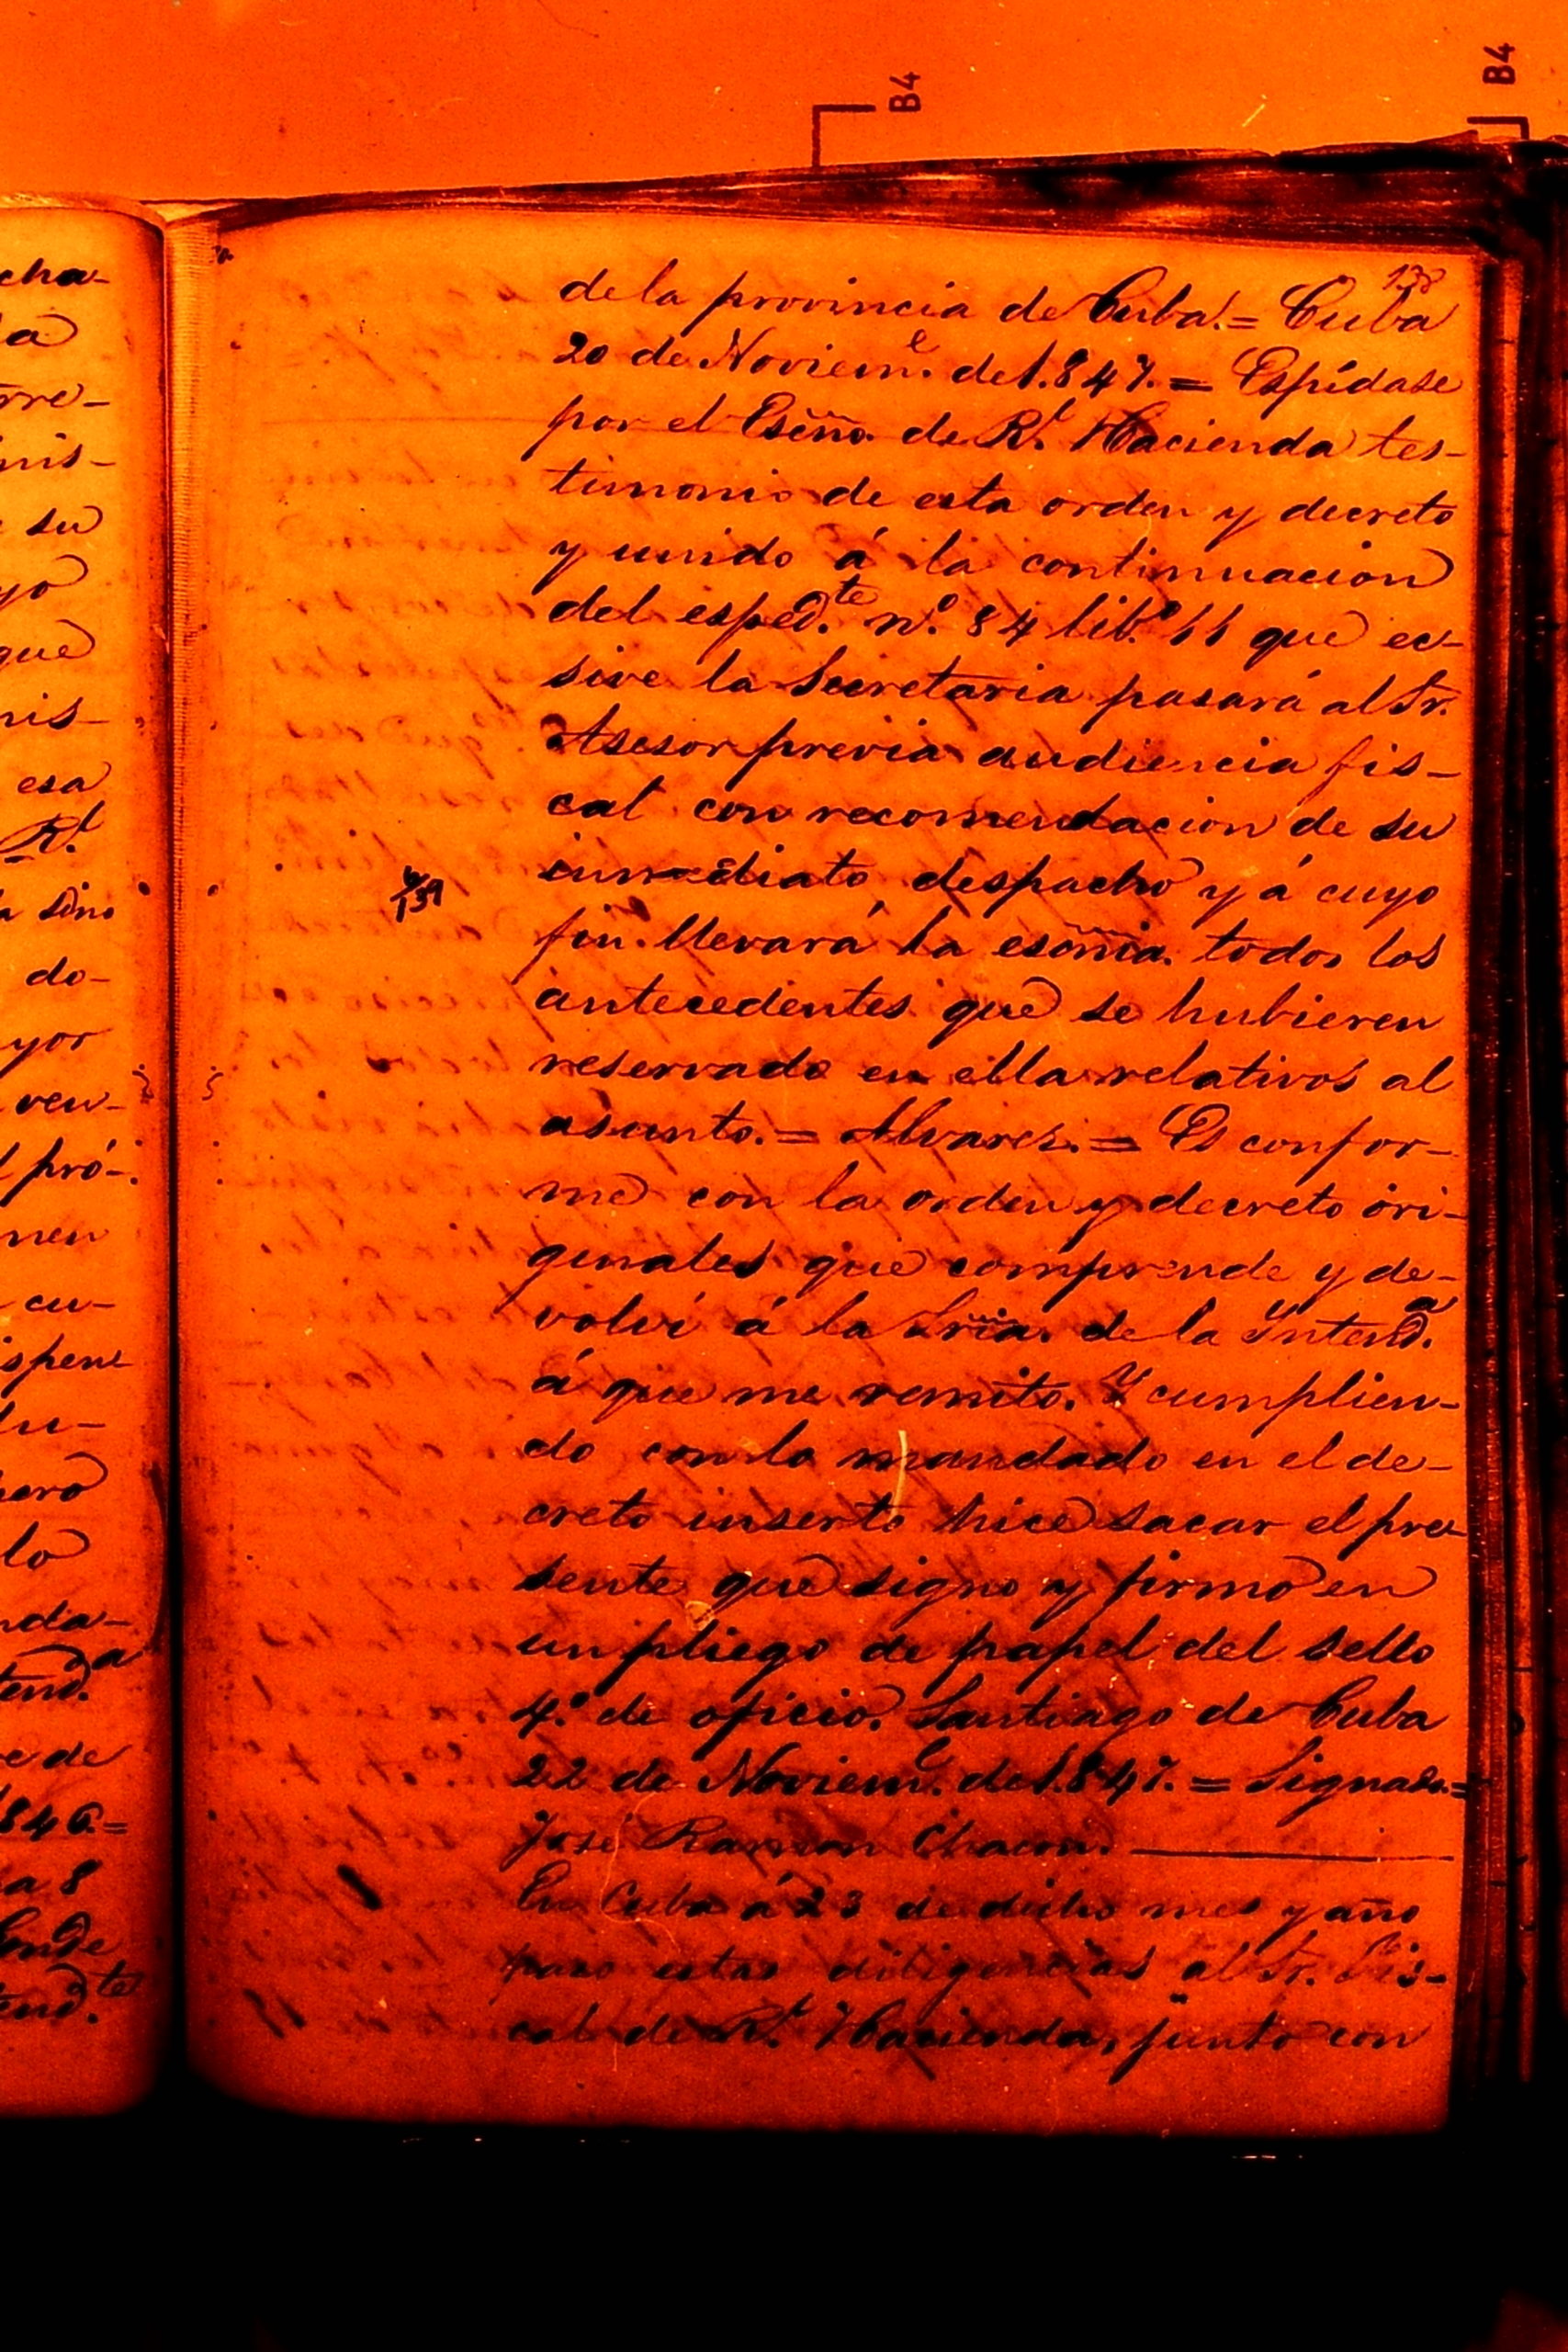 B4
B4
cha-
a
rre-
nis-
su
yo
que
nis-
esa
Rl.
sino
do-
yor
ven-
pró-
men
cu-
ispene
du-
pero
lo
nda-
tend.a
e de
846.=
a 8
Conde
tend.te
138
de la provincia de Cuba.= Cuba
20 de Noviem.e de 1.847.= Espídase
por el Esc̃no. de Rl. Hacienda tes-
timonio de esta orden y decreto
y unido á la continuacion
del esped.te n.o 84 lib.o 11 que ec-
sive la Secretaria pasará al Sr.
Asesor previa audiencia fis-
cal con recomendacion de su
inmediato despacho y á cuyo
139
fin llevará la esc̃nia. todos los
antecedentes que se hubieren
reservado en ella relativos al
asunto.= Alvarez.= Es confor-
me con la orden y decreto ori-
ginales que comprende y de-
volví á la Sr̃ia. de la Intend.a
á que me remito. Y cumplien-
do con lo mandado en el de-
creto inserto hice sacar el pre-
sente que signo y firmo en
un pliego de papel del sello
4.o de oficio. Santiago de Cuba
22 de Noviem.e de 1.847.= Signado=
José Ramon Chacon.
En Cuba á 23 de dicho mes y año
paso estas diligencias al Sr. Fis-
cal de Rl. Hacienda, junto con